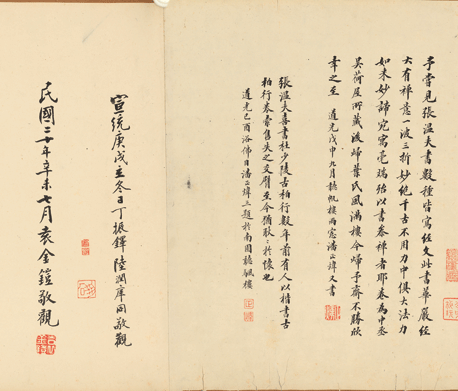 予嘗見張溫夫書數種皆寫經文此書華嚴經
大有禪意一波三折妙絕千古不用力中俱大法力
如來妙諦宛寫毫端殆以書參禪者耶卷為中丞
吳荷屋所藏後歸葉氏風滿樓今歸予齋不勝欣
幸之至 道光戊申九月聽颿樓雨窗潘正煒又書
張溫夫喜書杜少陵古柏行數年前有人以楷書古
柏行卷索售失之交臂至今猶耿耿於懷也
道光己酉浴佛日潘正煒三題於南園聽颿樓
宣統庚戌立冬日丁振鐸陸潤庠同敬觀
民國二十年辛未七月袁金鎧敬觀